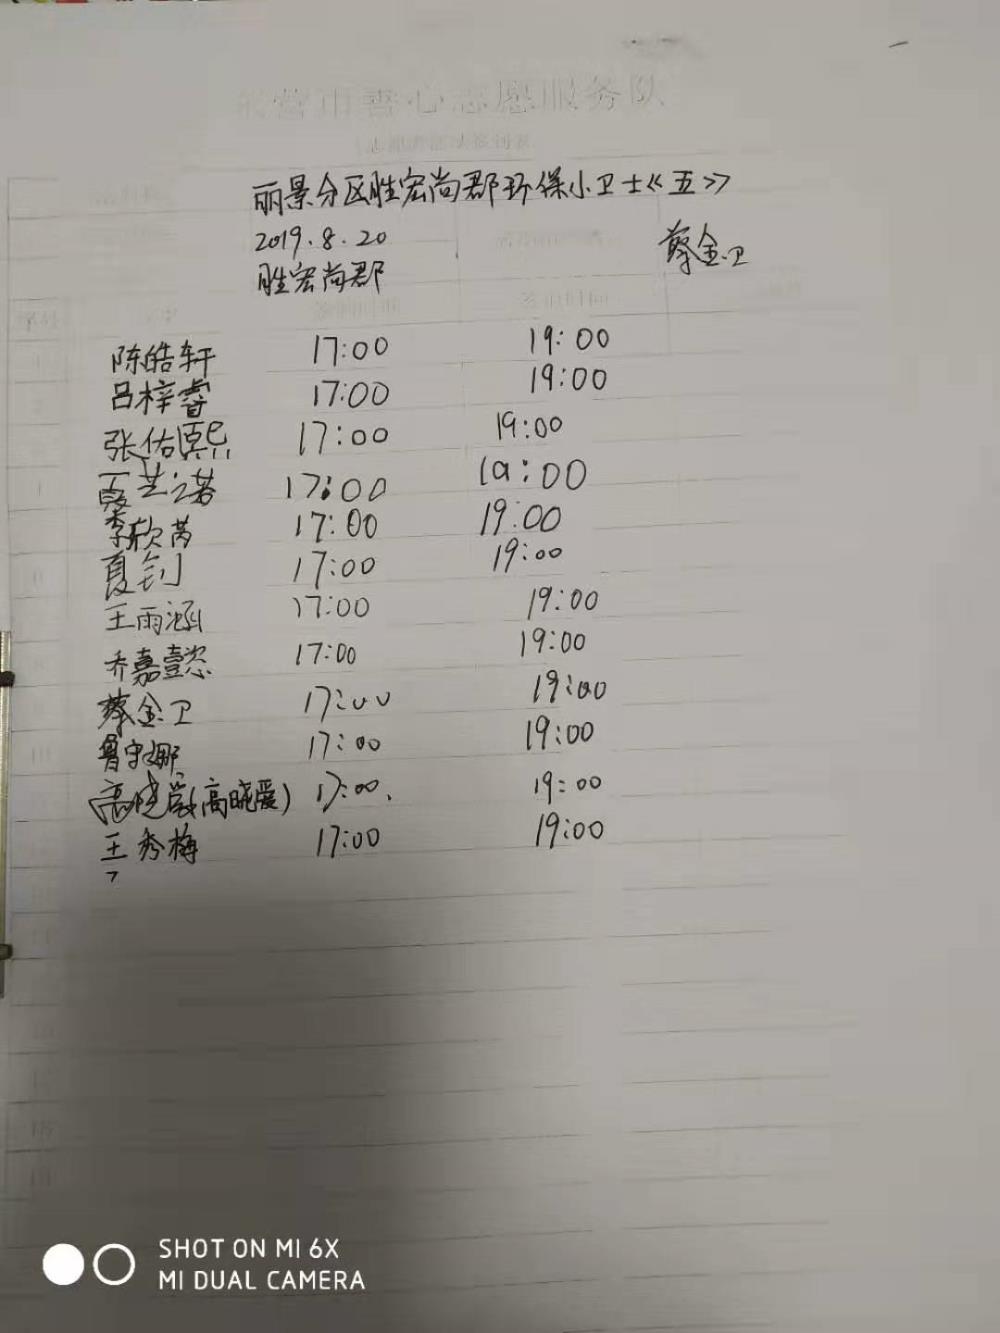 东营市善心志愿服务队
丽景分区胜宏尚郡环保小卫士《五》
2019.8.20
蔡金卫
胜宏尚郡
陈皓轩 17:00 19:00
吕梓睿 17:00 19:00
张佑熙 17:00 19:00
夏芝之若 17:00 19:00
李欣芮 17:00 19:00
夏钊 17:00 19:00
王雨涵 17:00 19:00
乔嘉懿 17:00 19:00
蔡金卫 17:00 19:00
鲁守娜 17:00 19:00
高晓爱(高晓爱) 17:00. 19:00
王秀梅 17:00 19:00
SHOT ON MI 6X
MI DUAL CAMERA